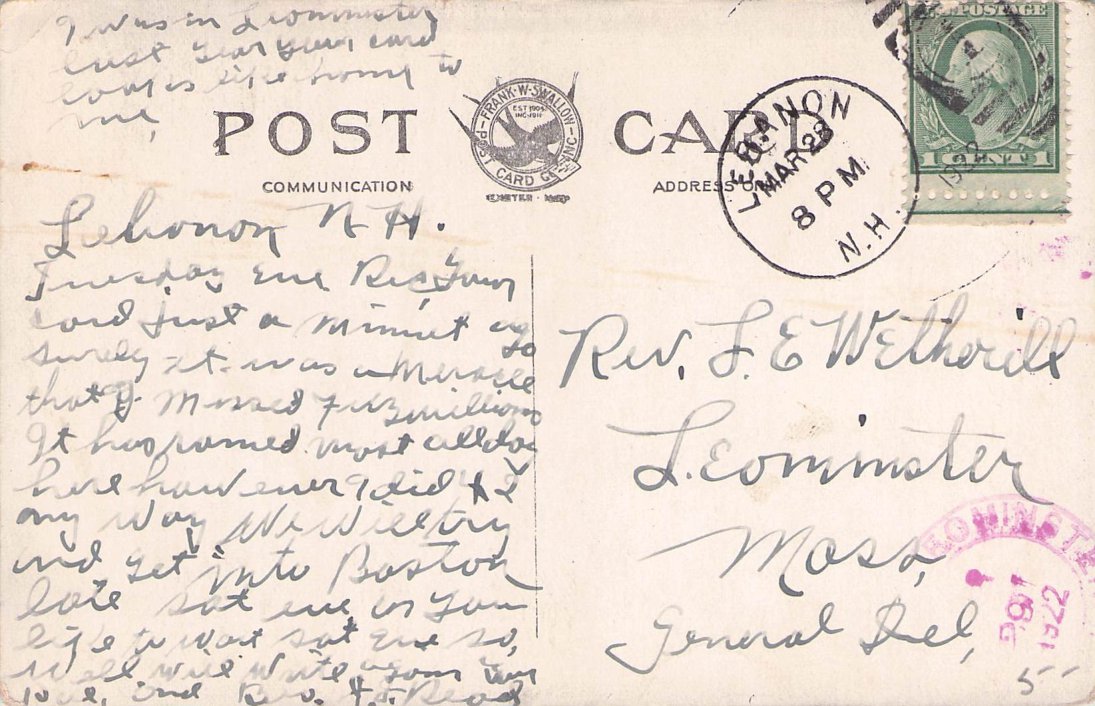 I was in Leominster
last year your card
looks like home to
me,
POST CARD
FRANK·W·SWALLOW
POST CARD CO. INC
EST 1904
INC. 1911
EXETER
COMMUNICATION
ADDRESS ON
LEBANON
MAR 28
8 PM
N.H.
1922
U.S. POSTAGE
1 CENT 1
Lebanon N H.
Tuesday Eve Rec, Your
card Just a Minuet ago
surely it was a
that I Missed
It has rained most all day
here however I did
my Way We Will try
and get into Boston
late sat eve as you
like to wait sat Eve so,
Well will Write again
love, and
Rev. L E Wetherill
Leominster
Mass,
General Del,
LEOMINSTER
1922
5